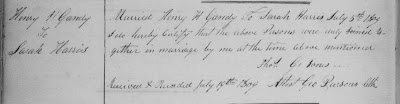 Henry H Gandy
To
Sarah Harris
Married Henry H Gandy To Sarah Harris July 5th 1809
I do hereby Certify that the above Persons were duly joined to
gether in marriage by me at the time above mentioned
Thos. C. Jones
Received & Recorded July 19th 1809 Attest Geo Parsons Clk